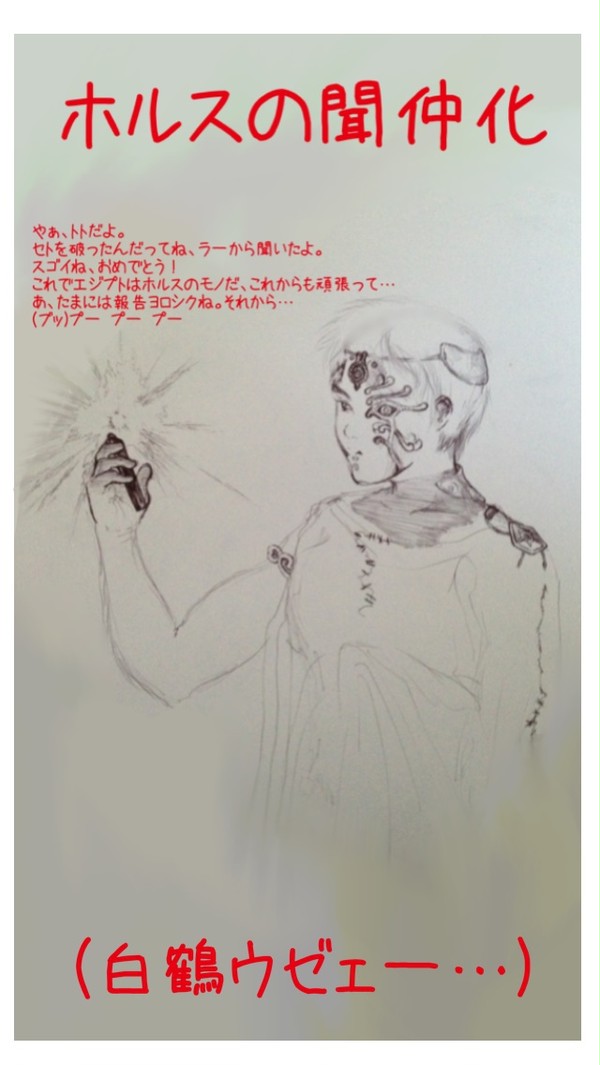 ホルスの聞仲化
やぁ、トトだよ。
セトを破ったんだってね、ラーから聞いたよ。
スゴイね、おめでとう！
これでエジプトはホルスのモノだ、これからも頑張って…
あ、たまには報告ヨロシクね。それから…
(プッ)プー プー プー
(白鶴ウゼェー…)